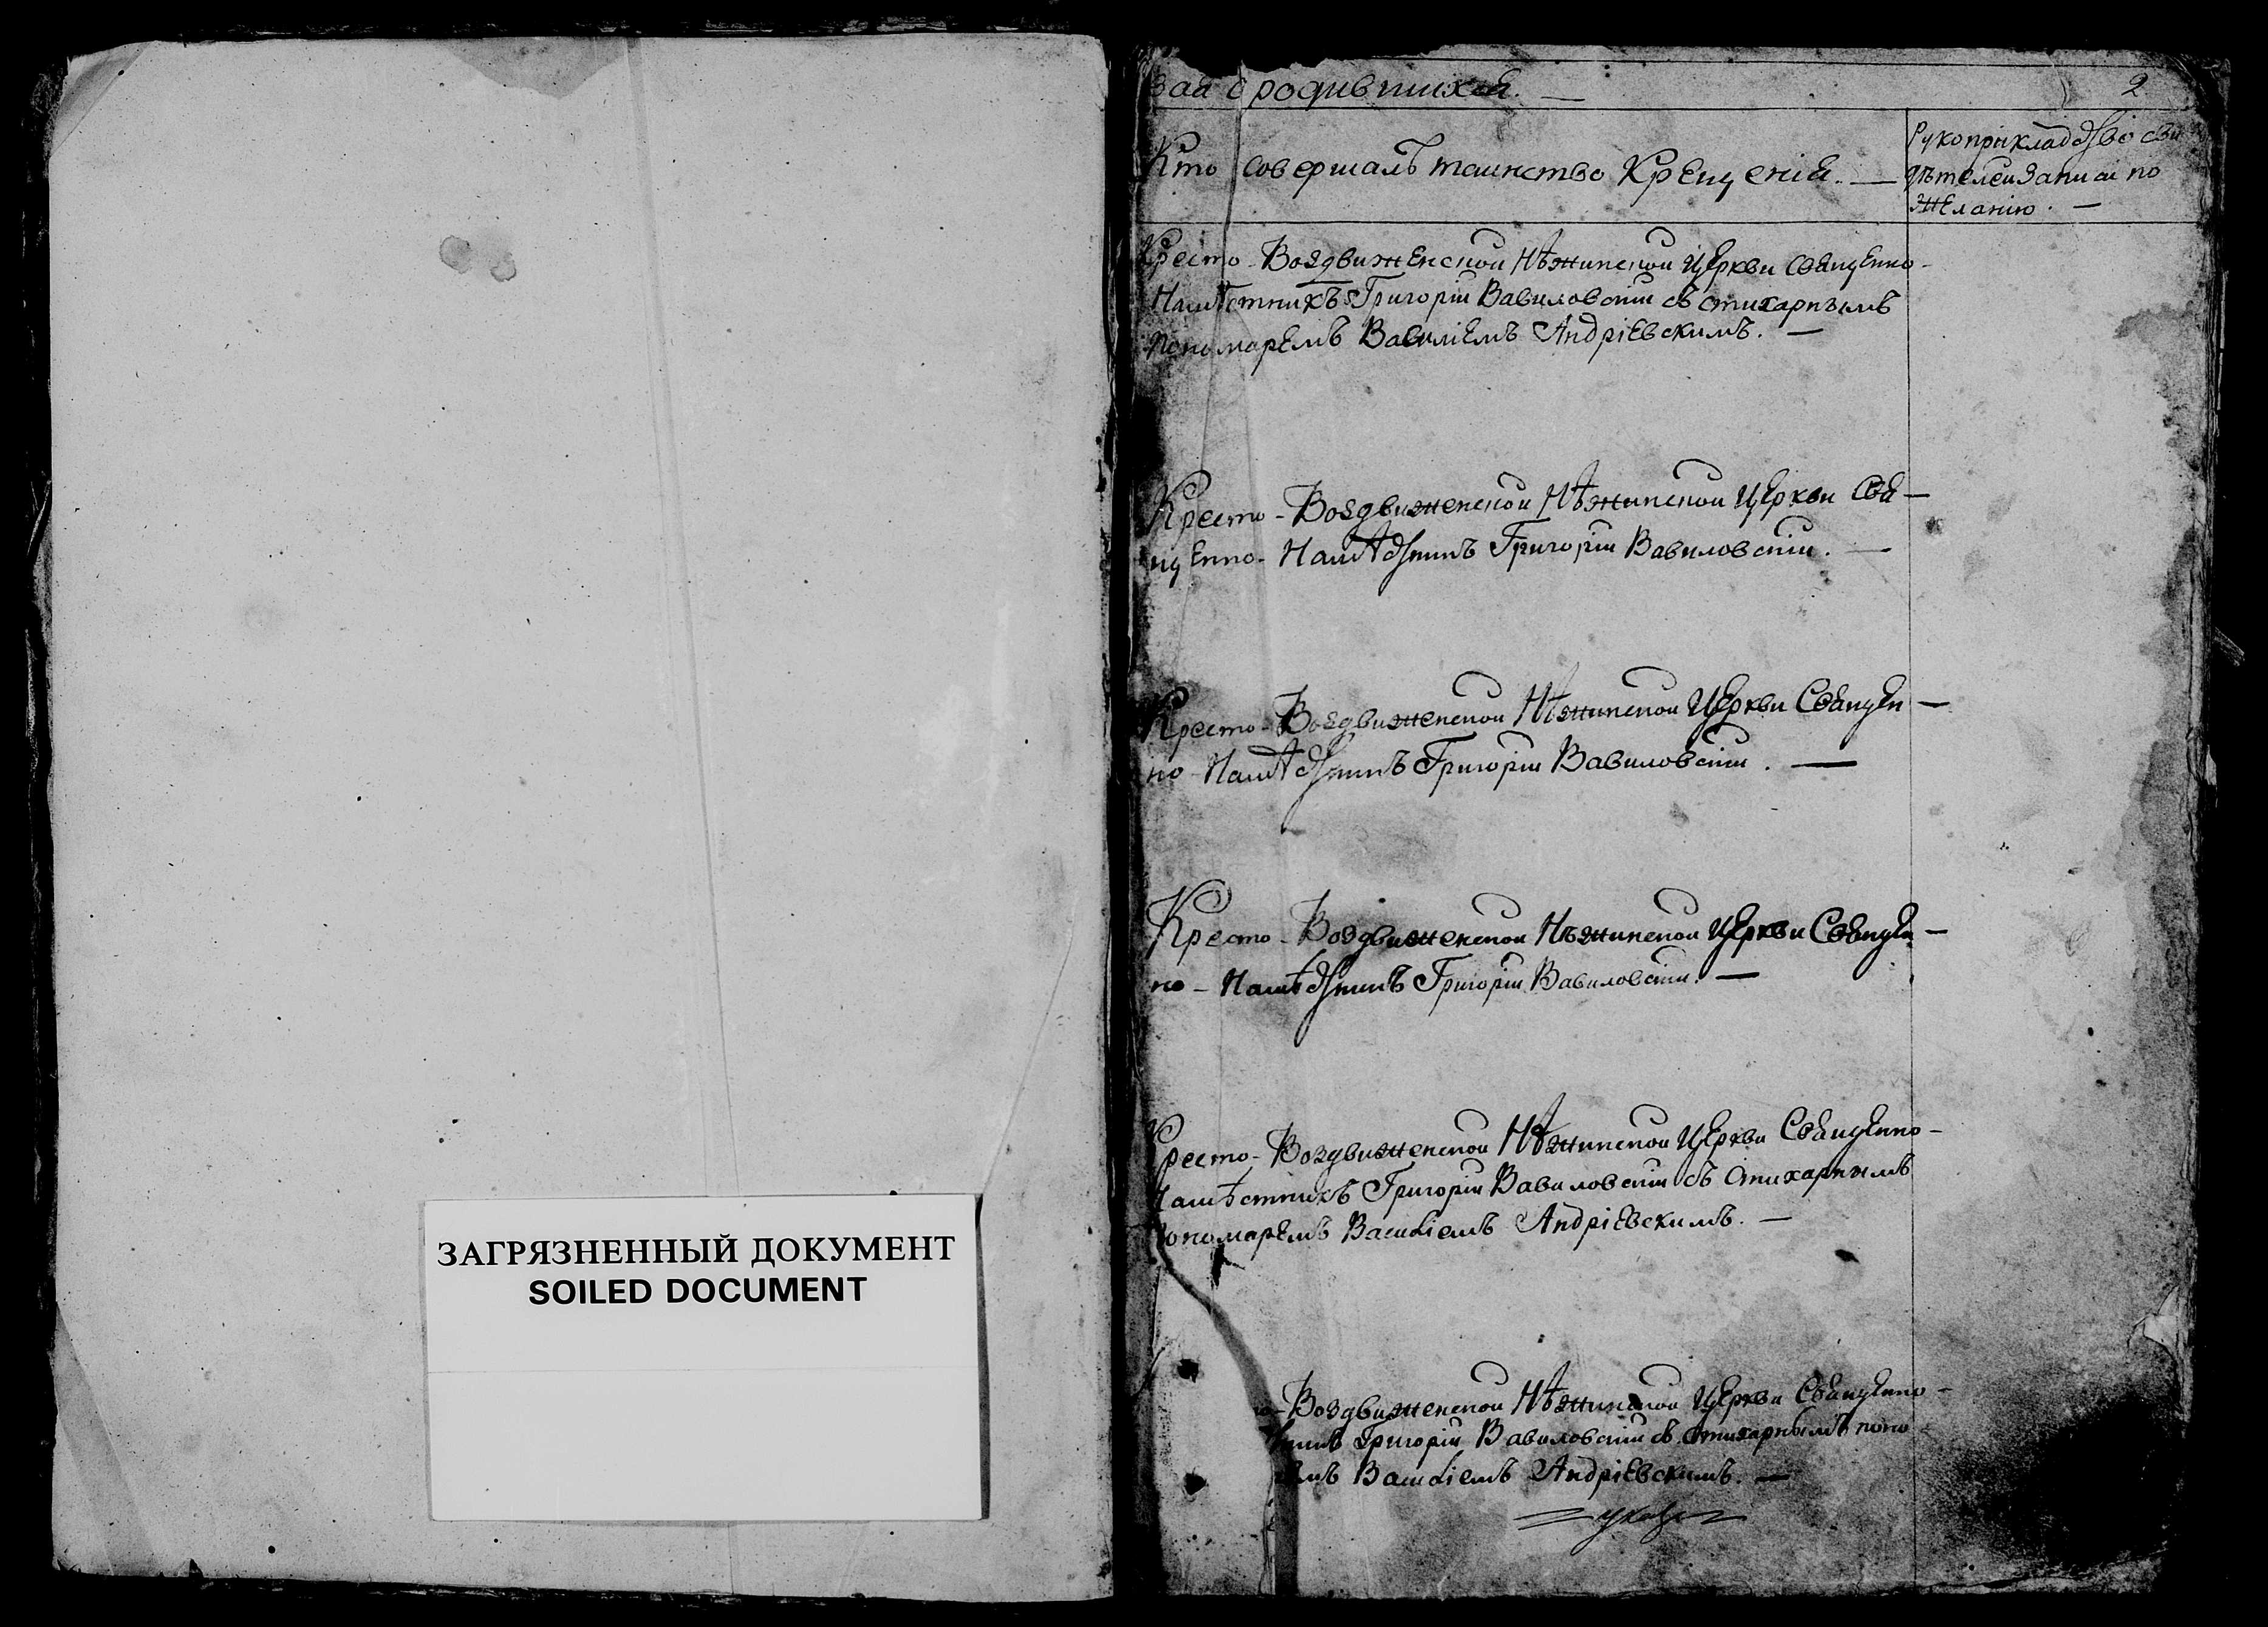 ЗАГРЯЗНЕННЫЙ ДОКУМЕНТ
SOILED DOCUMENT
вая о родившихся. —
2
Кто совершалъ таинство Крещенія. —
Рукоприкладство сви
дѣтелей записи по
желанію. —
Кресто-Воздвиженской Нѣжинской Церкви Священно-
Намѣстникъ Григорій Вавиловскій съ стихарнымъ
пономаремъ Василіемъ Андріевскимъ. —
Кресто-Воздвиженской Нѣжинской Церкви Свя—
щенно-Намѣстникъ Григорій Вавиловскій. —
Кресто-Воздвиженской Нѣжинской Церкви Священ—
но-Намѣстникъ Григорій Вавиловскій. —
Кресто-Воздвиженской Нѣжинской Церкви Священ—
но-Намѣстникъ Григорій Вавиловскій. —
Кресто-Воздвиженской Нѣжинской Церкви Священно-
Намѣстникъ Григорій Вавиловскій съ Стихарнымъ
пономаремъ Василіемъ Андріевскимъ. —
о-Воздвиженской Нѣжинской Церкви Священно-
стникъ Григорій Вавиловскій съ стихарнымъ поно
емъ Василіемъ Андріевскимъ. —